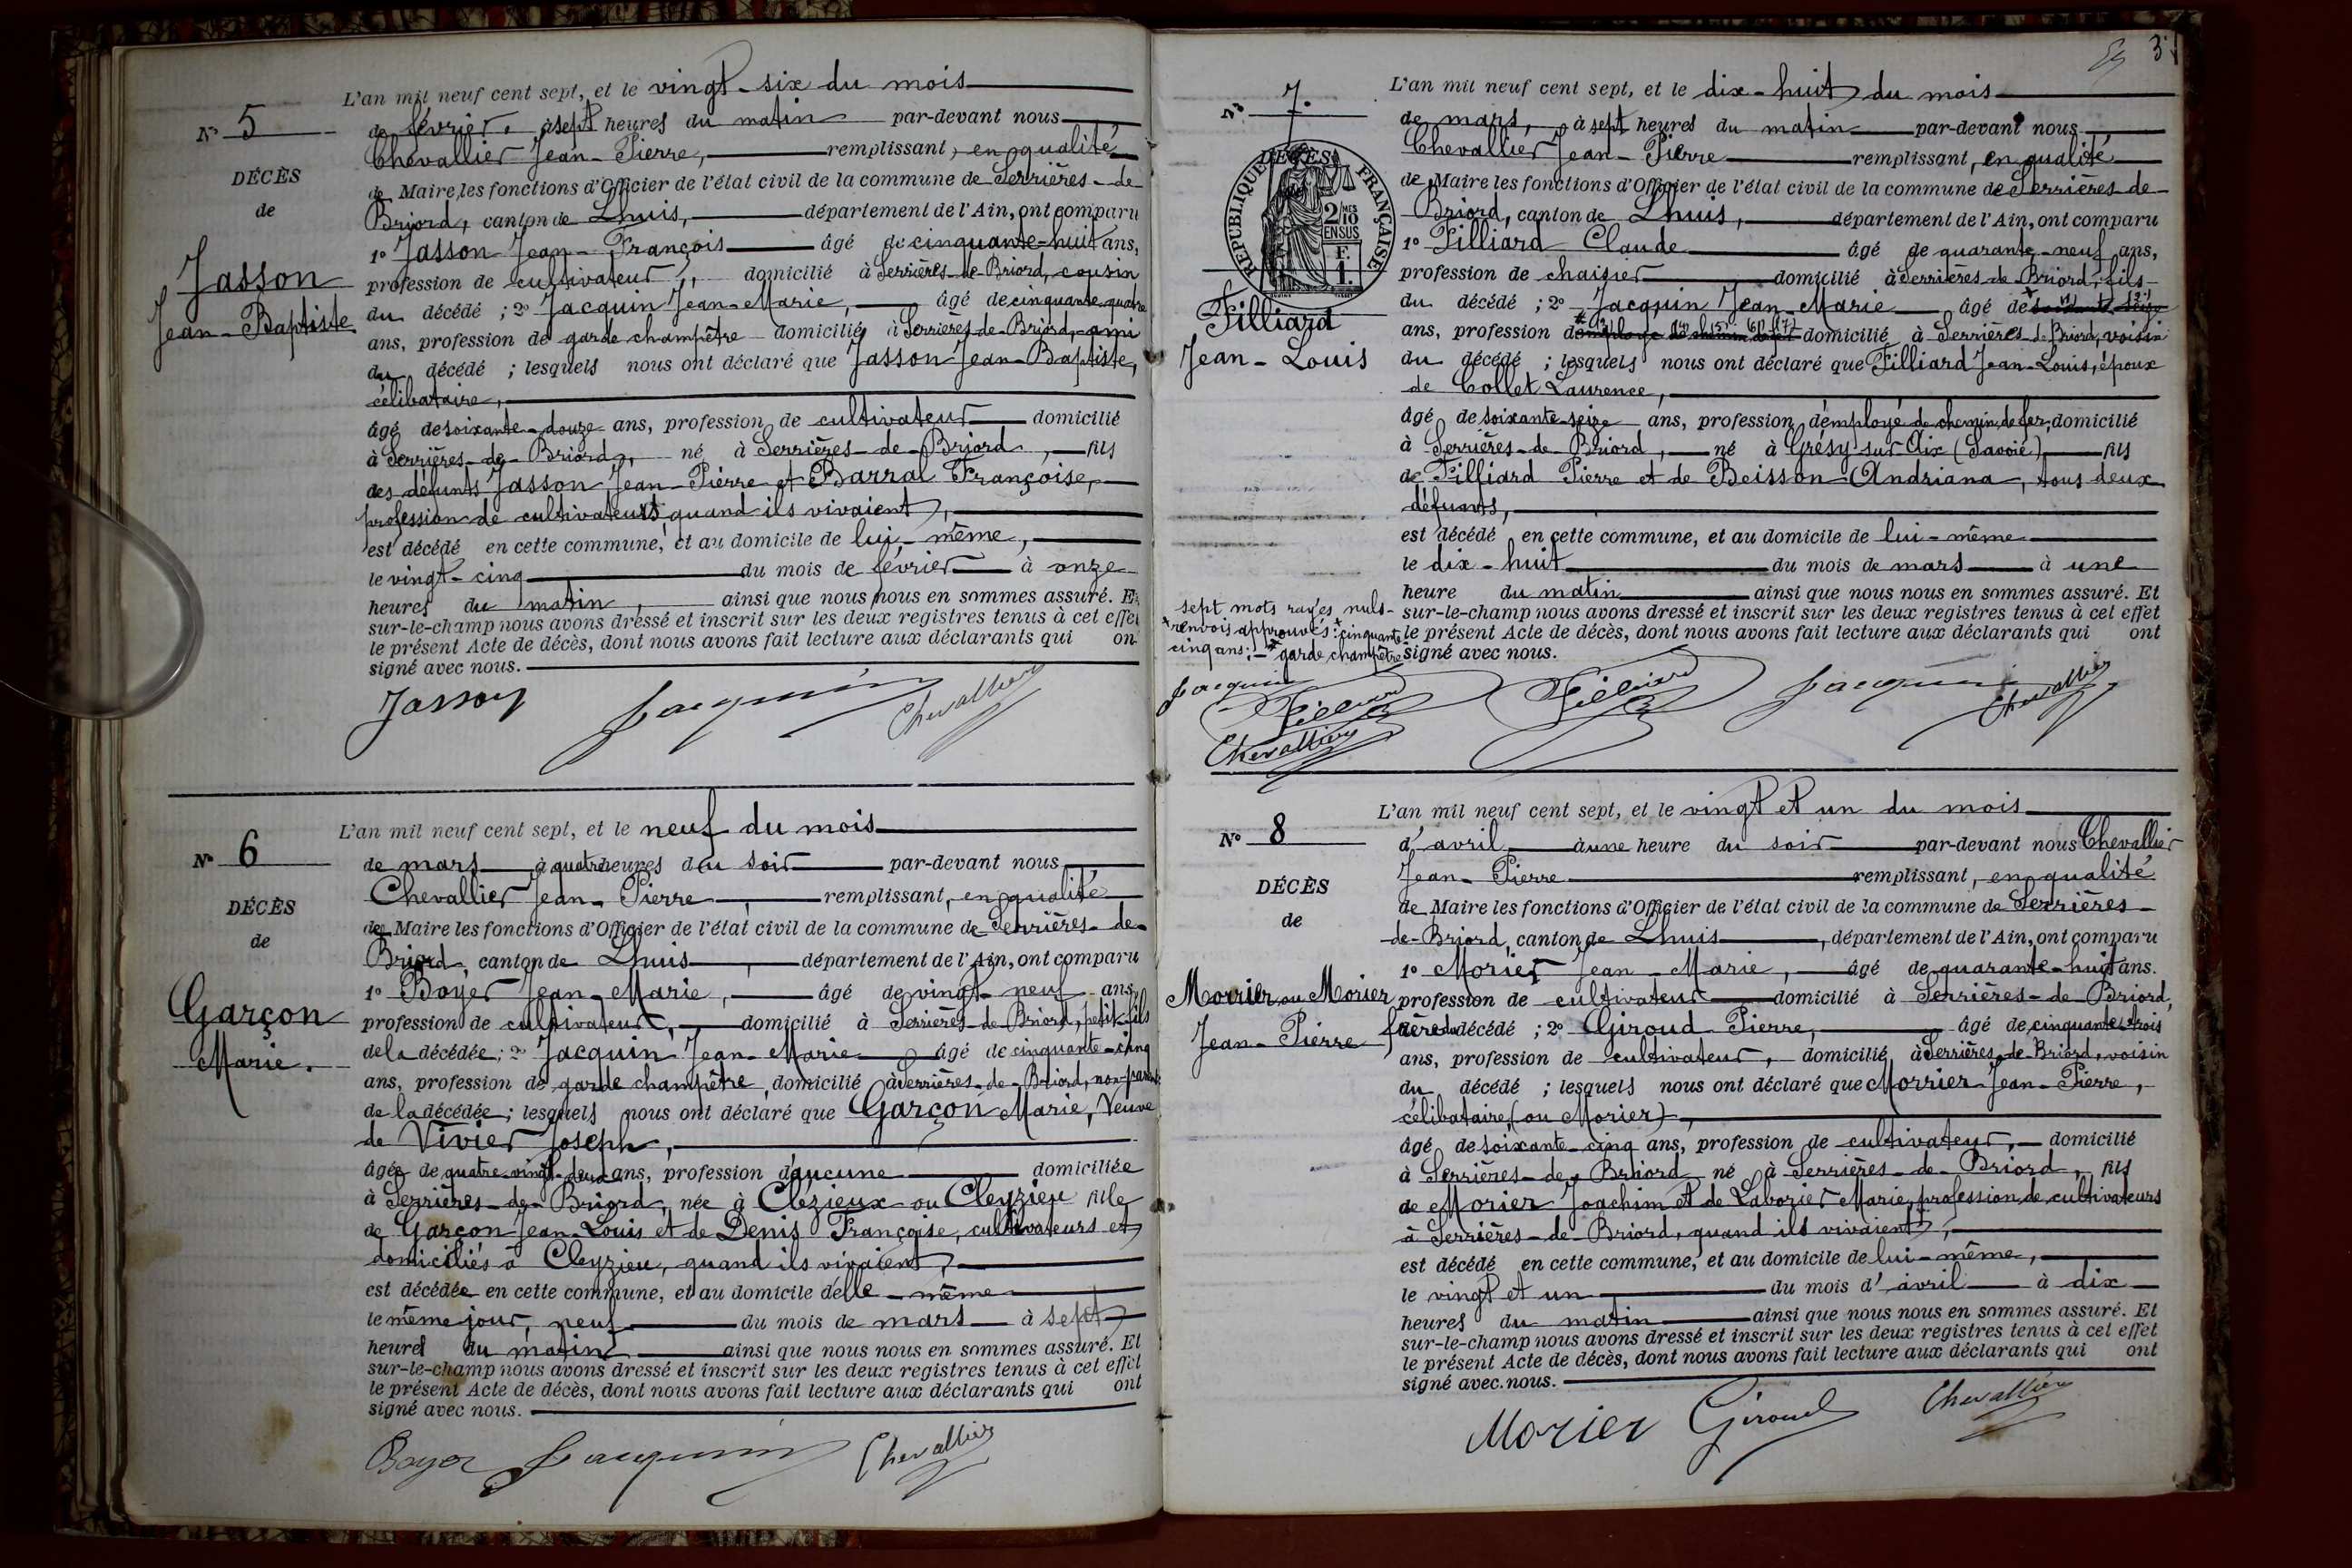 L'an mil neuf cent sept, et le vingt-six du mois
N° 5
de février, à sept heures du matin par-devant nous
Chevallier Jean-Pierre, remplissant, en qualité
DÉCÈS
de Maire, les fonctions d'Officier de l'état civil de la commune de Serrières-de-
de
Briord, canton de Lhuis, département de l'Ain, ont comparu
1° Jasson Jean-François âgé de cinquante-huit ans,
Jasson
profession de cultivateur, domicilié à Serrières-de-Briord, cousin
Jean-Baptiste
du décédé ; 2° Jacquin Jean-Marie, âgé de cinquante quatre
ans, profession de garde champêtre domicilié à Serrières-de-Briord, ami
du décédé ; lesquels nous ont déclaré que Jasson Jean-Baptiste,
célibataire,
âgé de soixante-douze ans, profession de cultivateur domicilié
à Serrières-de-Briord, né à Serrières-de-Briord, fils
des défunts Jasson Jean-Pierre et Barral Françoise,
profession de cultivateurs quand ils vivaient,
est décédé en cette commune, et au domicile de lui-même,
le vingt-cinq du mois de février à onze
heures du matin, ainsi que nous nous en sommes assuré. Et
sur-le-champ nous avons dressé et inscrit sur les deux registres tenus à cet effet
le présent Acte de décès, dont nous avons fait lecture aux déclarants qui ont
signé avec nous.
Jasson Jacquin Chevallier
L'an mil neuf cent sept, et le neuf du mois
N° 6
de mars à quatre heures du soir par-devant nous
Chevallier Jean-Pierre, remplissant, en qualité
DÉCÈS
de Maire les fonctions d'Officier de l'état civil de la commune de Serrières-de-
de
Briord, canton de Lhuis, département de l'Ain, ont comparu
1° Boyer Jean-Marie, âgé de vingt-neuf ans,
Garçon
profession de cultivateur, domicilié à Serrières-de-Briord, petit-fils
Marie.
de la décédée ; 2° Jacquin Jean-Marie âgé de cinquante-cinq
ans, profession de garde champêtre, domicilié à Serrières-de-Briord, non-parent
de la décédée ; lesquels nous ont déclaré que Garçon Marie, Veuve
de Vivier Joseph,
âgée de quatre-vingt-deux ans, profession d'aucune domiciliée
à Serrières-de-Briord, née à Clézieux ou Cleyzieu fille
de Garçon Jean-Louis et de Denis Françoise, cultivateurs et
domiciliés à Cleyzieu, quand ils vivaient,
est décédée en cette commune, et au domicile d'elle-même
le même jour, neuf du mois de mars à sept
heures du matin ainsi que nous nous en sommes assuré. Et
sur-le-champ nous avons dressé et inscrit sur les deux registres tenus à cet effet
le présent Acte de décès, dont nous avons fait lecture aux déclarants qui ont
signé avec nous.
Boyer Jacquin Chevallier
3
L'an mil neuf cent sept, et le dix-huit du mois
N° 7.
de mars, à sept heures du matin par-devant nous
Chevallier Jean-Pierre remplissant, en qualité
DÉCÈS
RÉPUBLIQUE FRANÇAISE
2/10 MES
EN SUS
F.
1.
de Maire les fonctions d'Officier de l'état civil de la commune de Serrières-de-
Briord, canton de Lhuis, département de l'Ain, ont comparu
1° Filliard Claude âgé de quarante-neuf ans,
profession de chaisier domicilié à Serrières-de-Briord, fils
Filliard
Jean-Louis
du décédé ; 2° Jacquin Jean-Marie âgé de + soixante seize
ans, profession d'employé de chemin de fer domicilié à Serrières-de-Briord, voisin
du décédé ; lesquels nous ont déclaré que Filliard Jean-Louis, époux
de Collet Laurence,
âgé de soixante-seize ans, profession d'employé de chemin de fer, domicilié
à Serrières-de-Briord, né à Grésy-sur-Aix (Savoie) fils
de Filliard Pierre et de Beisson Andriana, tous deux
défunts,
est décédé en cette commune, et au domicile de lui-même
le dix-huit du mois de mars à une
heure du matin ainsi que nous nous en sommes assuré. Et
sur-le-champ nous avons dressé et inscrit sur les deux registres tenus à cet effet
le présent Acte de décès, dont nous avons fait lecture aux déclarants qui ont
signé avec nous.
sept mots rayés nuls-
renvois approuvés: + cinquante
cinq ans; - * garde champêtre
Jacquin
Filliard
Chevallier
Filliard Jacquin Chevallier
L'an mil neuf cent sept, et le vingt et un du mois
N° 8
d'avril à une heure du soir par-devant nous Chevallier
Jean-Pierre remplissant, en qualité
DÉCÈS
de Maire les fonctions d'Officier de l'état civil de la commune de Serrières-
de
de-Briord, canton de Lhuis, département de l'Ain, ont comparu
1° Morier Jean-Marie, âgé de quarante-huit ans.
Morrier ou Morier
profession de cultivateur domicilié à Serrières-de-Briord,
Jean-Pierre
frère du décédé ; 2° Giroud Pierre, âgé de cinquante-trois
ans, profession de cultivateur, domicilié à Serrières-de-Briord, voisin
du décédé ; lesquels nous ont déclaré que Morrier Jean-Pierre,
célibataire, (ou Morier),
âgé de soixante-cinq ans, profession de cultivateur, domicilié
à Serrières-de-Briord né à Serrières-de-Briord, fils
de Morier Joachim et de Labozier Marie, profession de cultivateurs
à Serrières-de-Briord, quand ils vivaient,
est décédé en cette commune, et au domicile de lui-même,
le vingt et un du mois d'avril à dix
heures du matin ainsi que nous nous en sommes assuré. Et
sur-le-champ nous avons dressé et inscrit sur les deux registres tenus à cet effet
le présent Acte de décès, dont nous avons fait lecture aux déclarants qui ont
signé avec nous.
Morier Giroud Chevallier